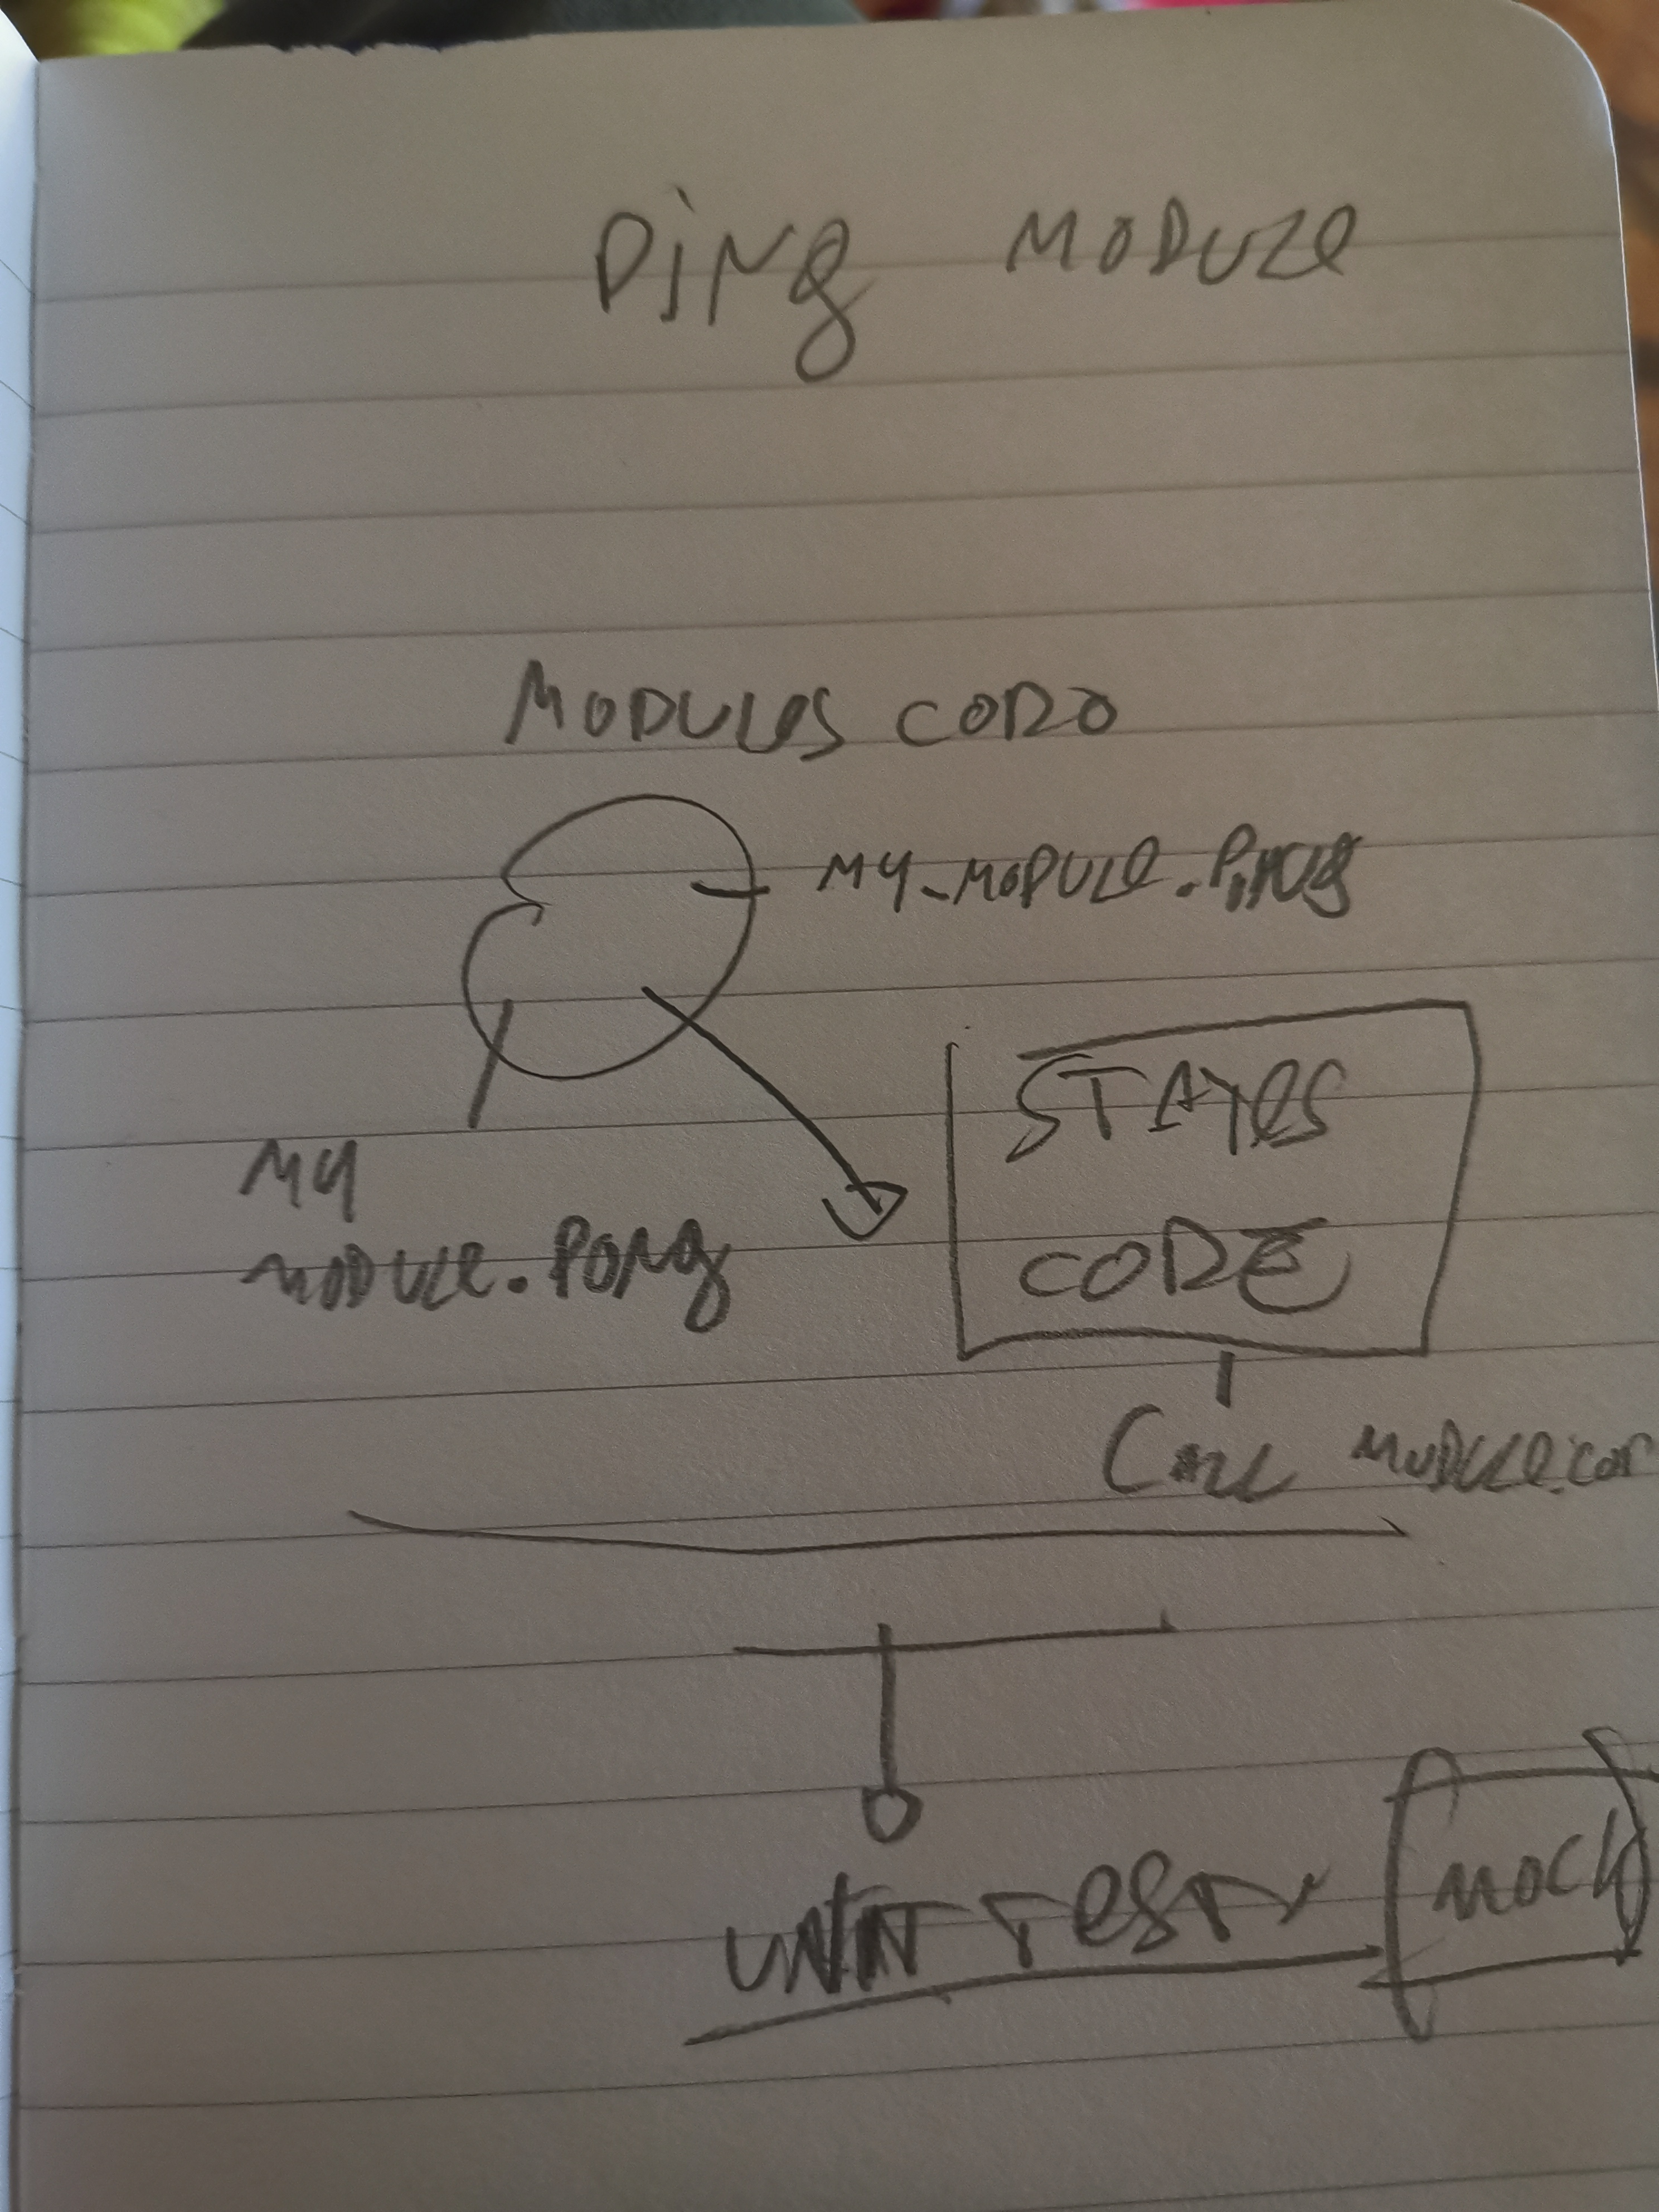 Ping Module
Modules code
my_module.ping
my
module.pong
States
CODE
Call module.cor
unit tests
mock